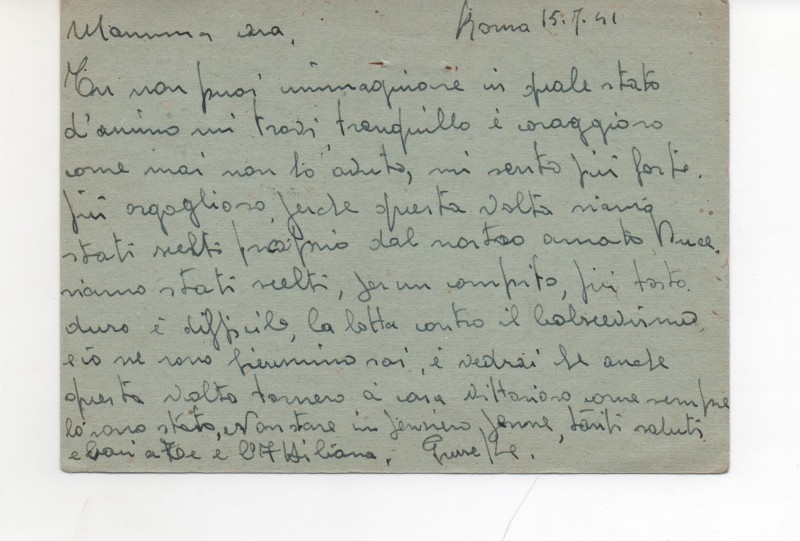 Mamma cara, Roma 15.7.41
Tu non puoi immaginare in quale stato
d'animo mi trovi, tranquillo è coraggioso
come mai non lo avuto, mi sento più forte.
più orgoglioso, perche questa volta siamo
stati scelti proprio dal nostro amato Duce.
siamo stati scelti, per un compito, più tosto.
duro è difficile, la lotta contro il bolscevismo
e io ne sono fierissimo sai, è vedrai che anche
questa volta tornero à casa vittorioso come sempre
lo sono stato, Non stare in pensiero per me, tanti saluti
e baci a te e